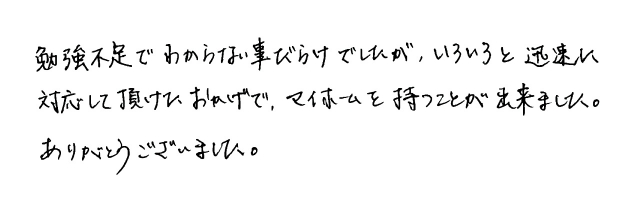 勉強不足でわからない事だらけでしたが、いろいろと迅速に
対応して頂けたおかげで、マイホームを持つことが出来ました。
ありがとうございました。